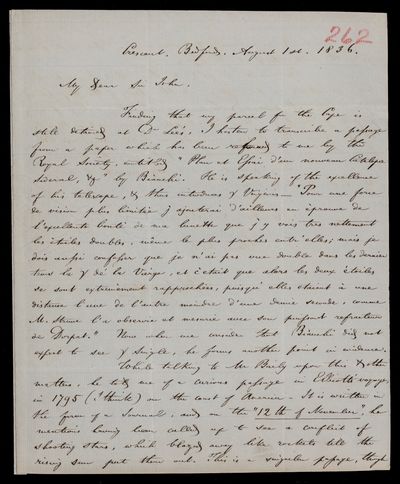 262
Crescent. Bedford. August 1st. 1836.
My Dear Sir John.
Finding that my parcel for the Cape is
still detained at Dr Lee's, I hasten to transcribe a passage
from a paper which has been referred to me by the
Royal Society, entitled "Plan et Essai d'un nouveau Catalogue
Sideral, &c" by Bianchi. He is speaking of the excellence
of his telescope, & thus introduces γ Virginis — "Pour une force
de vision plus limitée j'ajouterai d'ailleurs en épreuve de
l'excellente bonté de ma lunette que j'y vois tres nettement
les étoiles doubles, même les plus proches entr'elles; mais je
dois aussi confesser que je n'ai pas vue double dans les derniers
tems la γ de la Vierge, et c'étoit que alors les deux étoiles
se sont extremement rapprochées, puisqu'elles étoient à une
distance l'une de l'autre moindre d'une demie seconde, comme
M. Struve l'a observée et mesurée avec son puissant refracteur
de Dorpat." Now when we consider that Bianchi did not
expect to see γ single, he forms another point in evidence.
While talking to Mr Baily upon this & other
matters, he told me of a curious passage in Ellicott's voyage,
in 1795 (I think) on the coast of America — It is written in
the form of a Journal, and on the "12th of November", he
mentions having been called up to see a conflict of
shooting stars, which blazed away like rockets till the
rising sun put them out. This is a singular passage, though